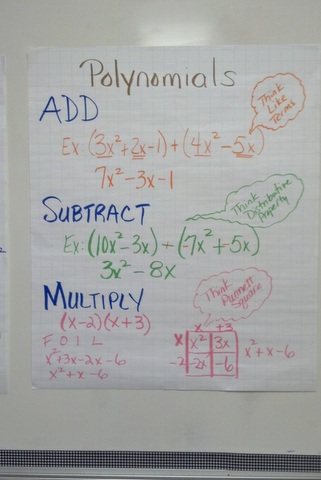 Polynomials
ADD
Think
Like
Terms
Ex: (3x²+2x-1)+(4x²-5x)
7x²-3x-1
SUBTRACT
Think
Distributive
Property
Ex: (10x²-3x)+(-7x²+5x)
3x²-8x
MULTIPLY
Think
Punnett
Square
(x-2)(x+3)
F O I L
x²+3x-2x-6
x²+x-6
x +3
x x² 3x
-2 -2x -6
x²+x-6